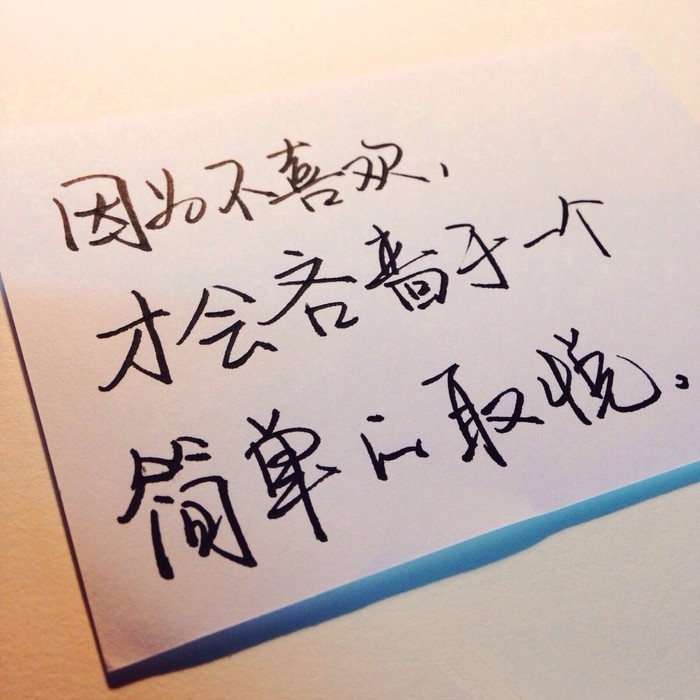 因为不喜欢，
才会吝啬于一个
简单的取悦。